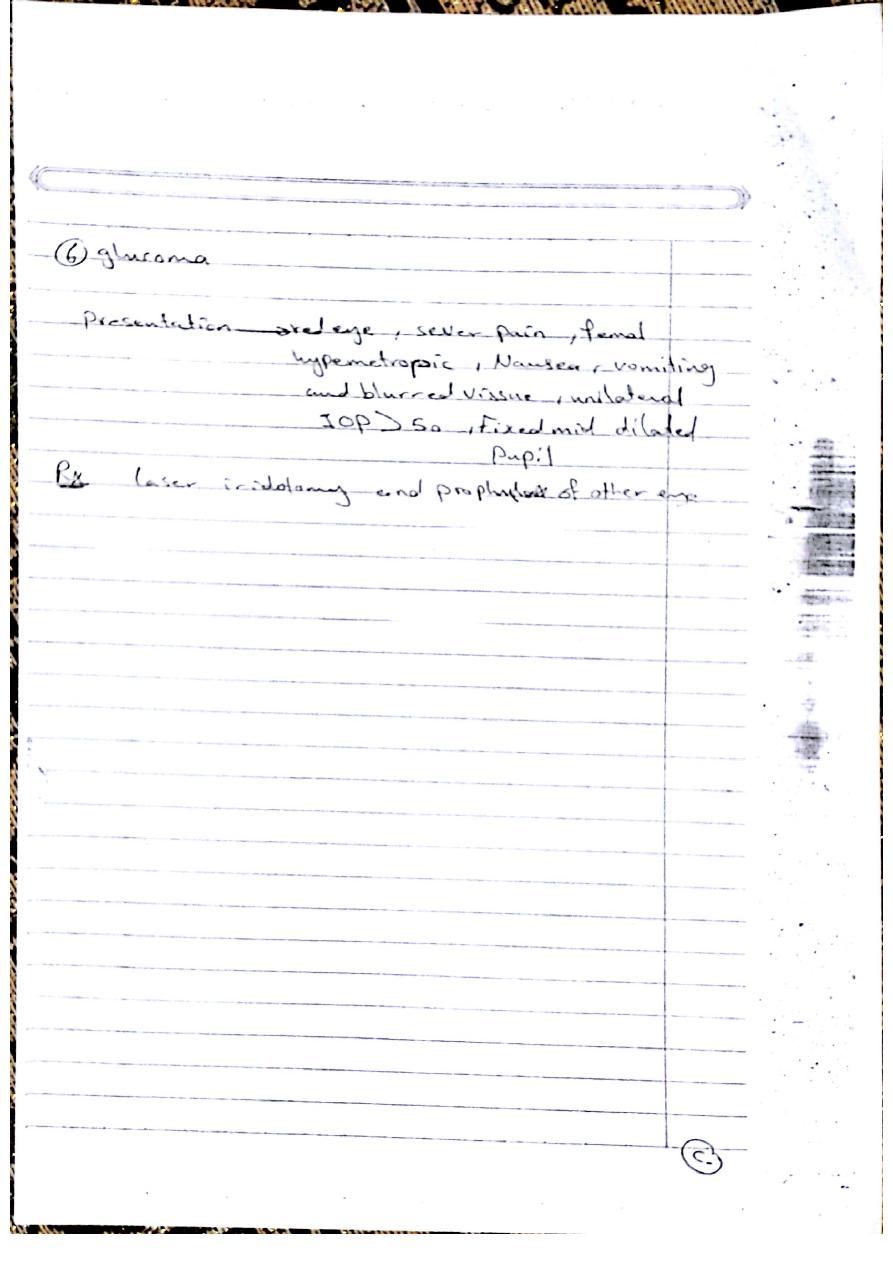 ⑥ glucoma
Presentation → red eye , sever pain , femal
hypemetropic , Nausea , vomiting
and blurred vissue , unilateral
IOP > 50 , Fixed mid dilated
Pupil
Rx laser iridotomy and of other eye